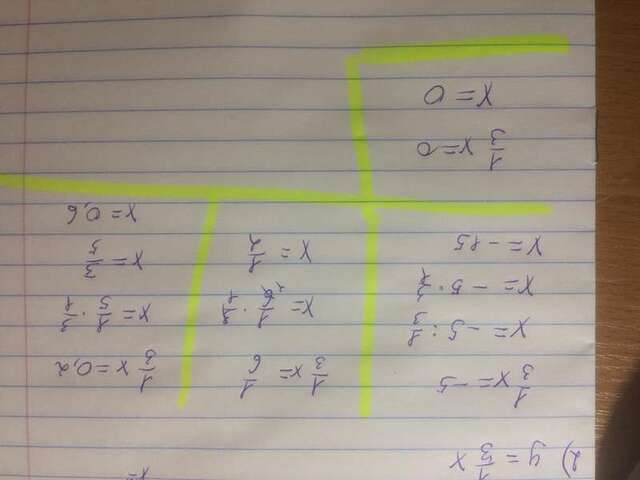 2) y = 1/3 x
1/3 x = -5
x = -5 : 1/3
x = -5 · 3/1
x = -15
1/3 x = 1/6
x = 1/6 2 · 3/1
x = 1/2
1/3 x = 0,2
x = 1/5 · 3/1
x = 3/5
x = 0,6
1/3 x = 0
x = 0